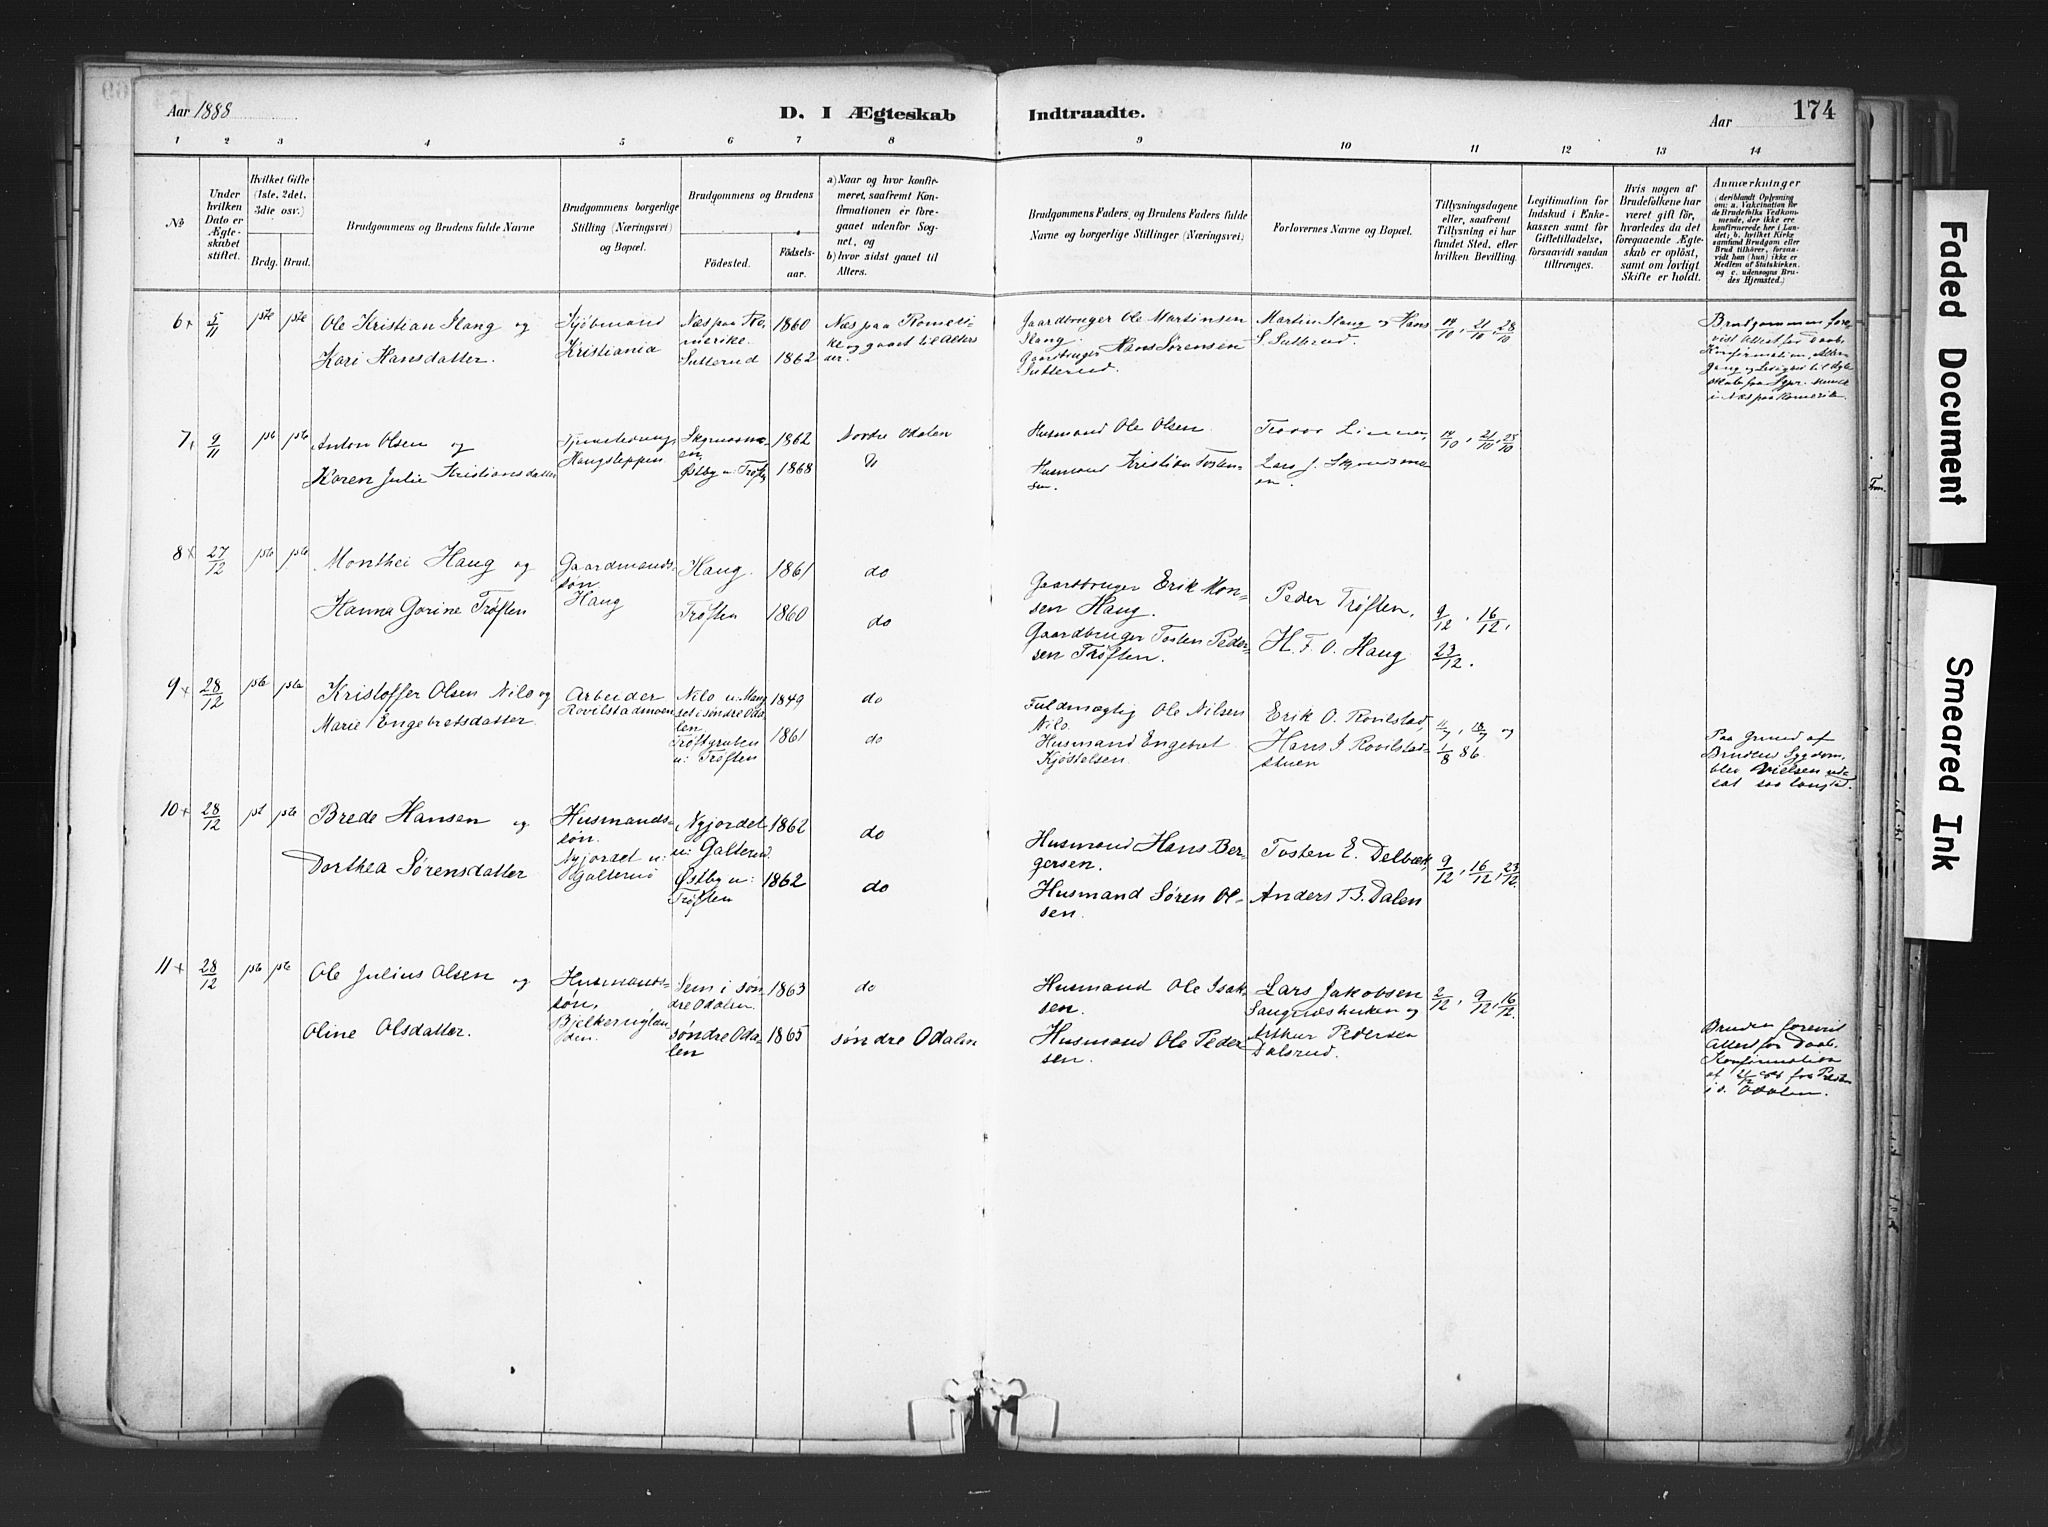 Aar 1888
D. I Ægteskab Indtraadte.
Aar
174
1 2 3 4 5 6 7 8 9 10 11 12 13 14
No
Under hvilken Dato er Ægteskabet stiftet.
Hvilket Gifte (1ste, 2det, 3die osv.)
Brdg. Brud.
Brudgommens og Brudens fulde Navne
Brudgommens borgerlige Stilling (Næringsvei) og Bopæl.
Brudgommens og Brudens
Födested.
Födselsaar.
a) Naar og hvor konfirmeret, saafremt Konfirmationen er foregaaet udenfor Sognet, og
b) hvor sidst gaaet til Alters.
Brudgommens Faders og Brudens Faders fulde Navne og borgerlige Stillinger (Næringsvei)
Forlovernes Navne og Bopæl.
Tillysningsdagene eller, saafremt Tillysning ei har fundet Sted, efter hvilken Bevilling.
Legitimation for Indskud i Enkekassen samt for Giftetilladelse, forsaavidt saadan tiltrænges.
Hvis nogen af Brudefolkene har været gift för, hvorledes da det foregaaende Ægteskab er oplöst, samt om lovligt Skifte er holdt.
Anmærkninger
(deriblandt Oplysning om: a. Vakcination for de Brudefolks Vedkommende, der ikke ere konfirmerede her i Landet; b. hvilket Kirkesamfund Brudgom eller Brud tilhörer, forsaavidt han (hun) ikke er Medlem af Statskirken, og c. udensogns Brudes Hjemsted.)
6 + 5/11 1ste 1ste
Ole Kristian Slang og
Kari Hansdatter.
Kjøbmand
Kristiania
Næs paa Romerike. 1860
Sutterud 1862
Næs paa Romerike og gaaet til Alters
Gaardbruger Ole Martinsen
Slang.
Gaardbruger Hans Sørensen
Sutterud.
Martin Slang og Hans
S. Sutterud.
14/10, 21/10, 28/10
Brudgommens
Attest for Daab,
Konfirmation,
i Næs paa Romerike
7 + 9/11
Anton Olsen og
Karen Julie Kristiansdatter
1862
Østby u: Trøften 1868
Nordre Odalen
Husmand Ole Olsen.
Husmand Kristian Tostensen.
14/10, 21/10, 28/10
8 + 27/12
Monthei Haug og
Hanna Gorine Trøften
Gaardmandssøn
Haug
Haug. 1861
Trøften 1860
do
do
Gaardbruger Erik Monsen Haug.
Gaardbruger Tosten Pedersen Trøften.
Peder Trøften,
H. F. O. Haug
9/12, 16/12,
23/12.
9 + 28/12
Kristoffer Olsen Nilo og
Marie Engebretsdatter
Arbeider
Rovilstadmoen
Nilo u: Haugset i søndre Odalen 1849
Trøftgruben 1861
u: Trøften
do
do
Fuldmægtig Ole Nilsen
Nilo.
Husmand Engebret
Kjøstelsen.
Erik O. Rovilstad,
Hans J. Rovilstadstuen
11/7, 18/7 og
1/8 86.
Paa Grund af
Brudens Sygdom
blev Vielsen udsat saa længe.
10 + 28/12
Brede Hansen og
Dorthea Sørensdatter
Husmandssøn.
Nyjordet u:
Galterud
Nyjordet 1862
u: Galterud.
Østby u: 1862
Trøften
do
do
Husmand Hans Bergersen.
Husmand Søren Olsen.
Tosten E. Delbæk,
Anders B. Dalen
9/12, 16/12, 23/12.
11 + 28/12
Ole Julius Olsen og
Oline Olsdatter.
Husmandssøn,
Sem i søndre Odalen. 1863
søndre Odalen 1865
do
søndre Odalen
Husmand Ole Isaksen.
Husmand Ole Pedersen.
Lars Jakobsen
og
Arthur Pedersen
Dalsrud.
2/12, 9/12, 16/12.
Bruden forevist
Attest for Daab,
Konfirmation
i s. Odalen.
Faded Document
Smeared Ink